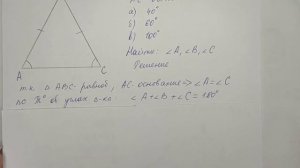 а) 40°
б) 60°
в) 100°
Найти: ∠A, ∠B, ∠C
Решение
A
C
т.к. △ABC-равноб, AC-основание => ∠A=∠C
по об углах ∠A+∠B+∠C=180°